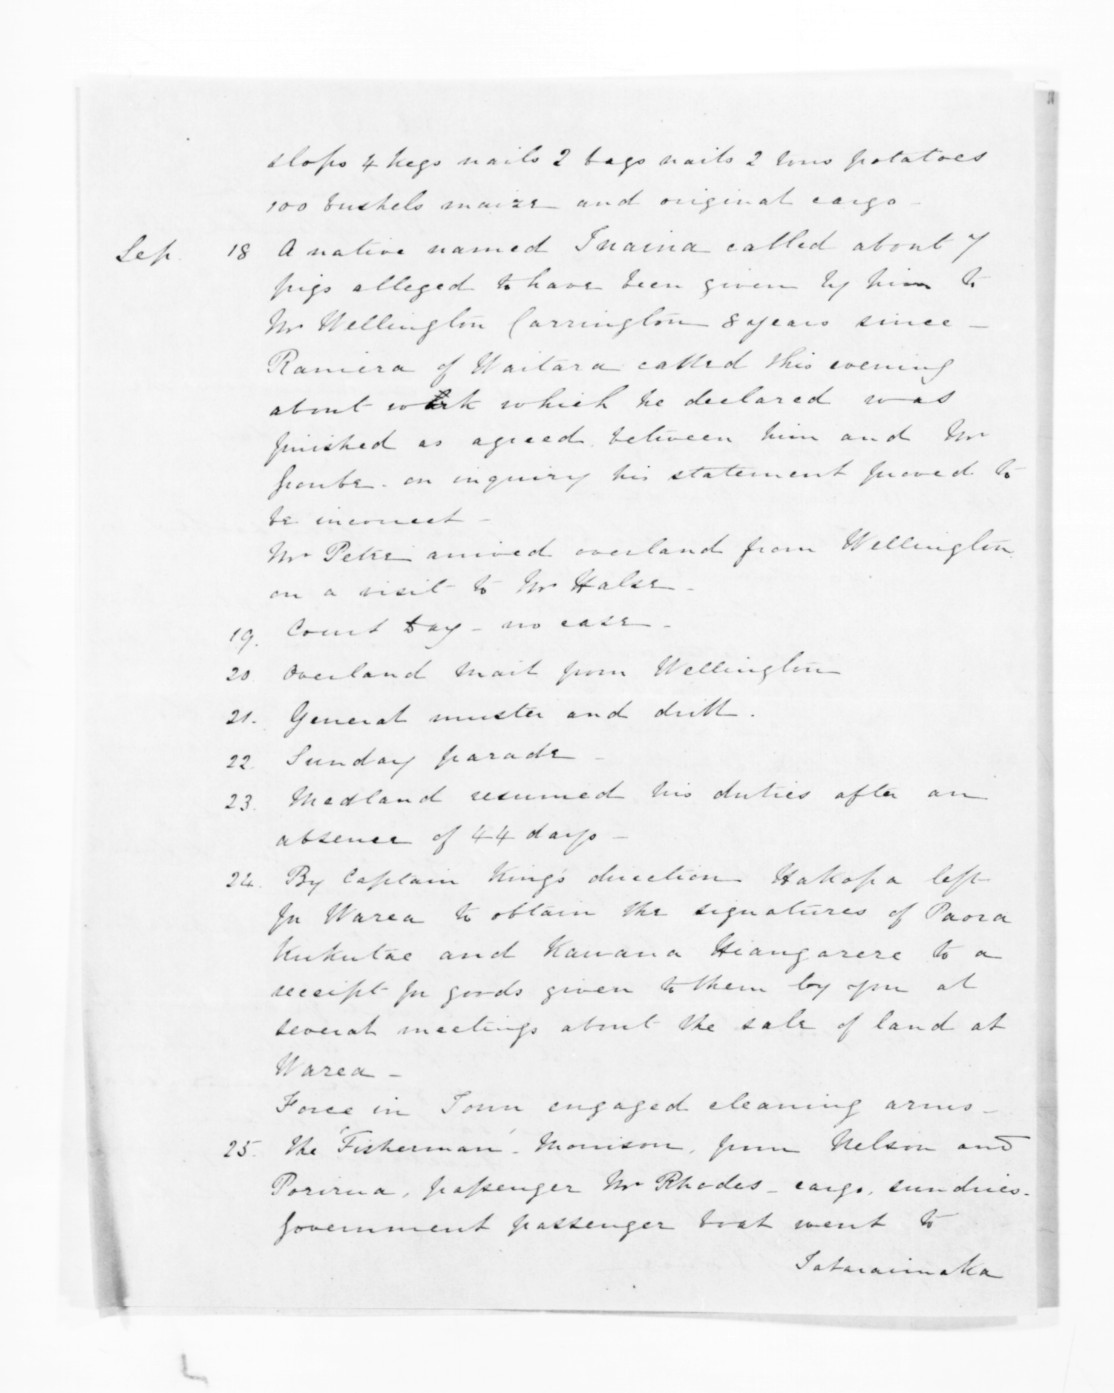 slops 4 kegs nails 2 bags nails 2 tons potatoes
100 bushels maize and original cargo -
Sep. 18 A native named Inaina called about 7
pigs alleged to have been given by him to
Mr Wellington Carrington 8 years since -
Ramera of Waitara called this evening
about work which he declared was
finished as agreed between him and Mr
on inquiry his statement proved to
be incorrect -
Mr Petre arrived overland from Wellington
on a visit to Mr Halse -
19. Court Day - no case -
20. Overland Mail from Wellington
21. General muster and drill.
22. Sunday parade -
23. Medland resumed his duties after an
absence of 44 days -
24. By Captain King's direction Hakopa left
for Warea to obtain the signatures of Paora
Kukutae and Kawana Hiangarere to a
receipt for goods given to them by you at
several meetings about the sale of land at
Warea -
Force in Town engaged cleaning arms -
25. The 'Fisherman' - Morrison, from Nelson and
Porirua, passenger Mr Rhodes - cargo, sundries.
Government passenger boat went to
Tataraimaka